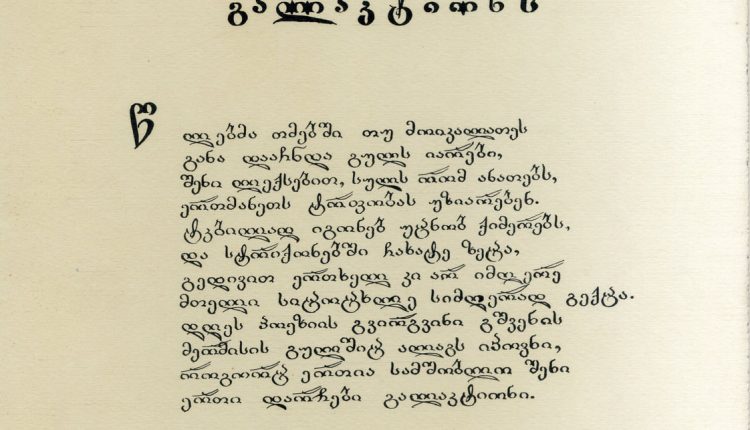 გალაკტიონს
წლებმა თმებში თუ მოიკალათეს
განა დააჩნდა გულს იარები,
შენი ლექსებით, სულს რომ ანათებს,
ერთმანეთს ტრფობას უზიარებენ.
ტკბილად იგონებ უცნობ ქიმერებს,
და სტრიქონებში ჩახატე ზეცა,
გედივით ერთხელ კი არ იმღერე
მთელი სიცოცხლე სიმღერად გექცა.
დღეს პოეზიის გვირგვინი გშვენის
მერმისის გულშიც ალაგს იპოვნი,
როგორც ერთია სამშობლო შენი
ერთი დარჩები გალაკტიონი.